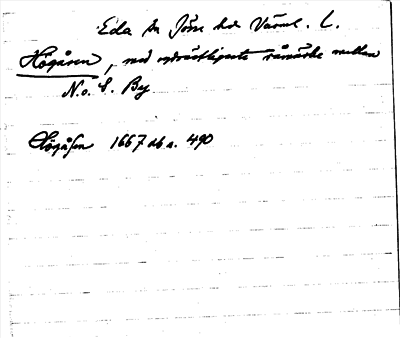 Eda sn Jösse hd Värml. l.
Högåsen, med nordöstligaste råmärke mellan
N. o. S. By
Högåsen 1667 db s. 490